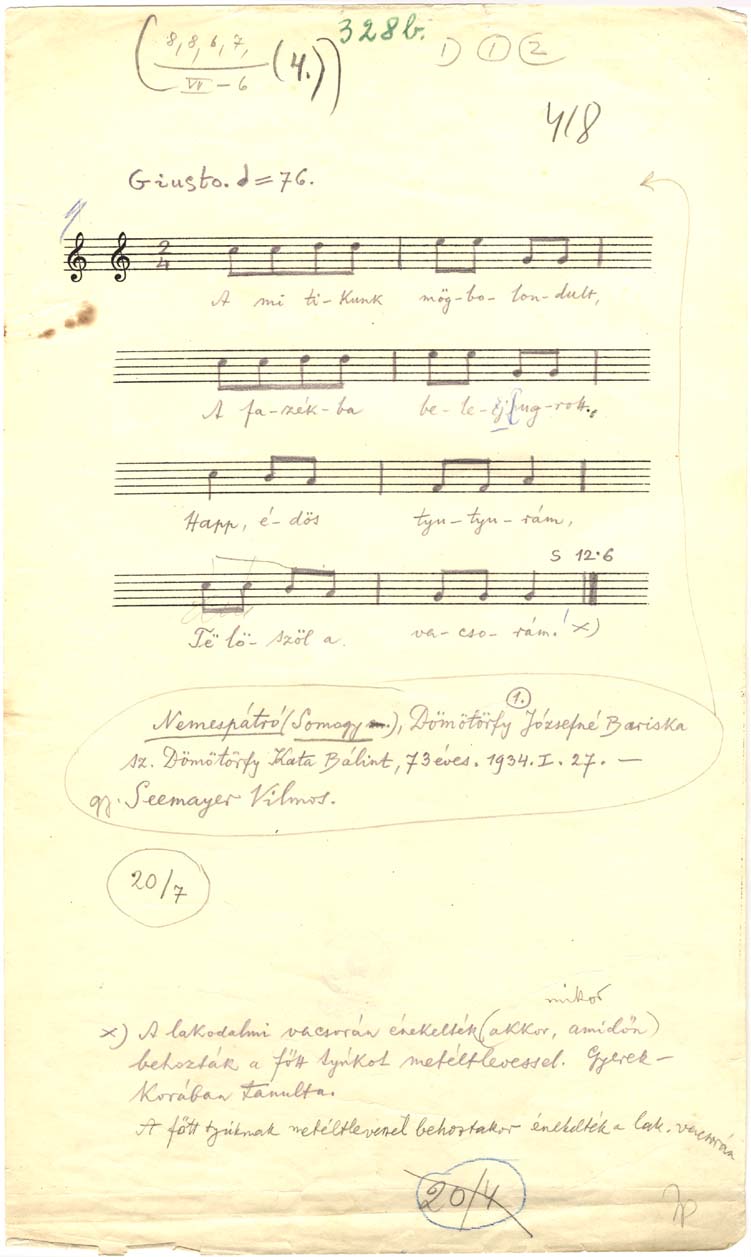 328b.
(8, 8, 6, 7, (4.))
VII – 6
1) ① ②
418
Giusto. d = 76.
2
4
A mi ti-kunk mög-bo-lon-dult,
A fa-zék-ba be-le-ug-rott.
Happ, é-dös tyu-tyu-rám,
S 12·6
Të lö-szöl a va-cso-rám! x)
1.
Nemespátró (Somogy m.), Dömötörfy Józsefné Bariska
sz. Dömötörfy Kata Bálint, 73 éves. 1934. I. 27. —
gy. Seemayer Vilmos.
20/7
mikor
x) A lakodalmi vacsorán énekelték (akkor, amidőn)
behozták a főtt tyúkot metéltlevessel. Gyerek-
korában tanulta.
A főtt tyúknak metéltlevessel behoztakor énekelték a lak. vacsorán
20/4